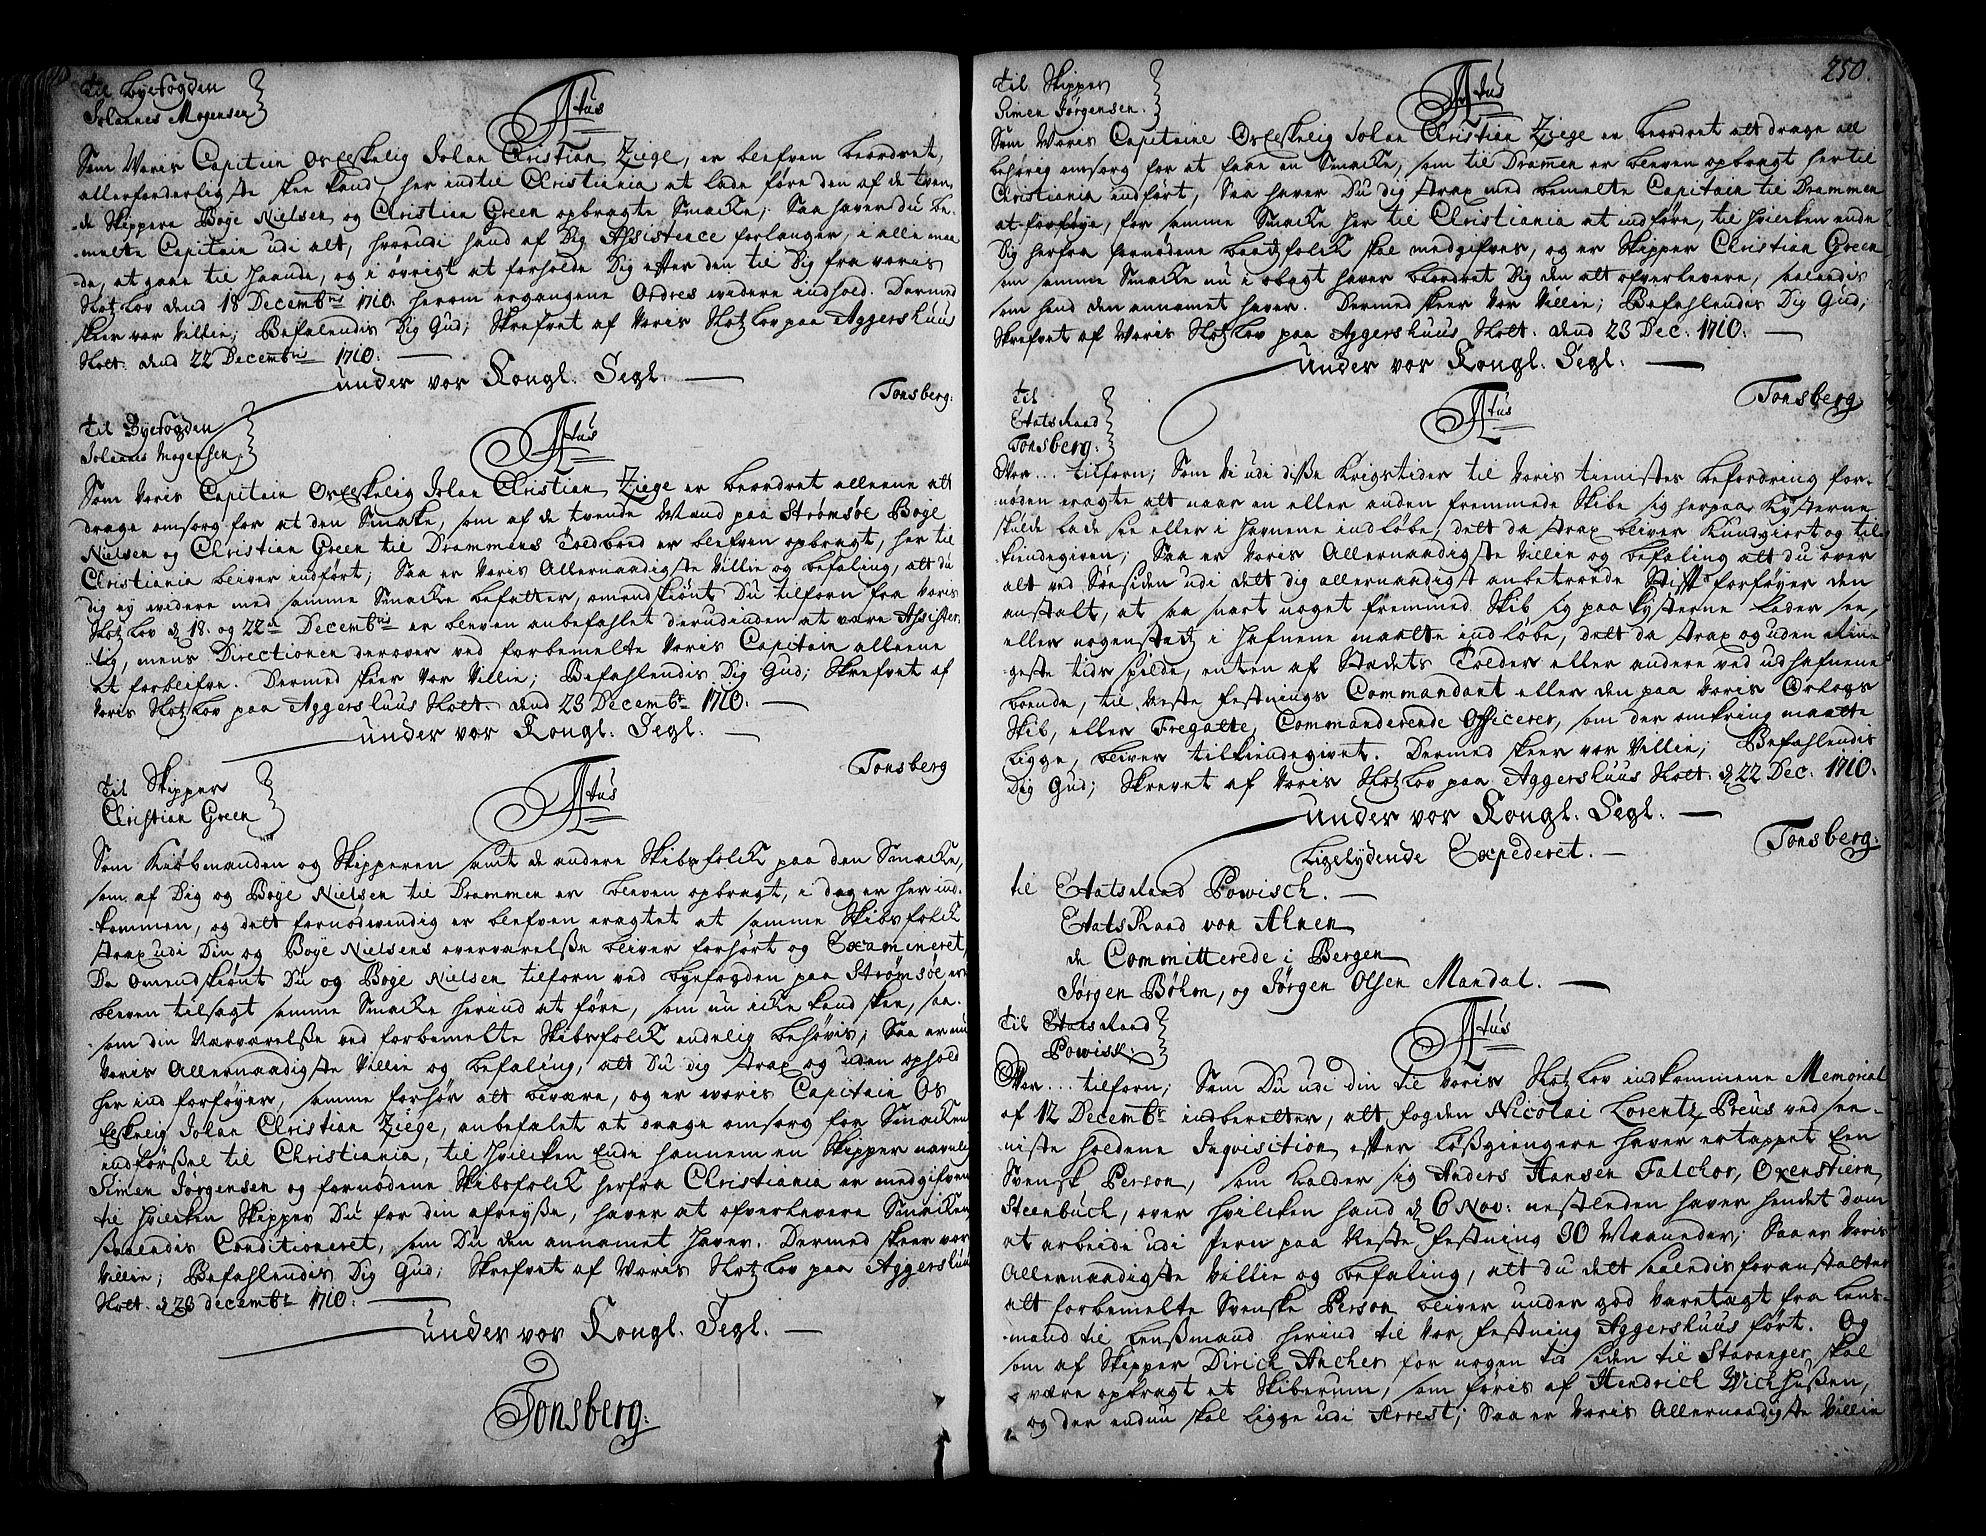 Til Byefogden
Johannes Mogensen
Fr: 4tus
Som Voris Capitain Os Elskelig Johan Christian Ziege, er blefven beordret,
allerforderligste skee kand, her indtil Christiania at lade føre den af de tven-
de Skippere Boye Nielsen og Christian Green opbragte Smacke; Saa haver du be-
melte Capitain udi alt, hvorudi hand af Dig Assistence forlanger, i alle maa-
de, at gaae til Haande, og i øvrigt at forholde Dig efter den til Dig fra voris
Slotz Lov dend 18 Decembris 1710. herom ergangene Ordres widere indhold. Dermed
skeer vor Villie; Befahlendis Dig Gud; Skrefvet af Voris Slotz Lov paa Aggershuus
Slott. dend 22 Decembris 1710.
under vor Kongl. Segl.
Tonsberg:
Til Byefogden
Johannes Mogensen.
Fr: 4tus
Som Voris Capitain Os Elskelig Johan Christian Ziege er beordret alleene att
drage omsorg for at den Smake, som af de tvende Mænd paa Strømsøe Boye
Nielsen og Christian Green til Drammens Toldboed er blefven opbragt, her til
Christiania bliver indført; Saa er Voris Allernaadigste Villie og befaling, att du
dig ey widere med samme Smacke befatter, omendskiønt Du tilforn fra Voris
Slotz Lov d. 18. og 22de Decembris er bleven anbefahlet derudinden at være Assister-
lig, mens Directionen derover ved forbemelte Voris Capitain alleene
at forblifve. Dermed skeer Vor Villie; Befahlendis Dig Gud; Skrefvet af
Voris Slotz Lov paa Aggershuus Slott. dend 23 Decembr 1710.
under vor Kongl. Segl.
Tonsberg
Til Skipper
Christian Green
Fr: 4tus
Som Kiøbmanden og Skipperen samt de andre Skibsfolck paa den Smacke,
som af Dig og Boye Nielsen til Drammen er bleven opbragt, i dag er her ind-
kommen, og dett fornødwendig er blefven eragtet at samme Skibsfolck
strax udi Din og Boye Nielsens overværelse bliver forhørt og Examineret,
Da Omendskiønt Du og Boye Nielsen tilforn ved byefogden paa Strømsøe er
bleven tilsagt samme Smacke herind at føre, som nu icke kand skee, saa-
som din Nærværelse ved forbemelte Skibsfolck endelig behøvis; Saa er nu
Voris Allernaadigste Villie og befaling, att Du dig strax og uden ophold
her ind forføyer, samme forhør att bivære, og er woris Capitain Os
Elskelig Johan Christian Ziege, anbefalet at drage omsorg for Smackens
indførsel til Christiania, til hvilcken Ende hannem en Skipper navnlig
Simen Jørgensen og fornødene Skibsfolck herfra Christiania er medgifven
til hvilcken Skipper Du for din afreyse, haver at ofverlevere Smacken
saaledis Conditioneret, som Du den annamet haver. Dermed skeer vor
Villie; Befahlendis Dig Gud; Skrefvet af Woris Slotz Lov paa Aggershuus
Slott. d. 23 decembr 1710.
under vor Kongl. Segl.
Tonsberg:
250.
Til Skipper
Simen Jørgensen.
Fr: 4tus
Som Woris Capitaine Os Elskelig Johan Christian Ziege er beordret att drage all
behørig omsorg for at faae en Smacke, som til Dramen er bleven opbragt her til
Christiania indført, Saa haver Du dig strax med bemelte Capitain til Drammen
at forføye, for samme Smacke her til Christiania at indføre, til hvilcken ende
Dig herfra fornødene baadsfolck skal medgifves, og er Skipper Christian Green
som samme Smacke nu i obagt haver beordret Dig den att ofverlevere, saaledis
som hand den annamet haver. Dermed skeer Vor Villie; Befahlendis Dig Gud;
Skrefvet af Woris Slotz Lov paa Aggershuus Slott. dend 23 Dec. 1710.
under vor Kongl. Segl.
Tonsberg
Til
Etats Raad
Tonsberg.
Fr: 4tus
Vor... tilforn; Som Vi udi disse Krigstider til Voris tienistes befordring for-
nøden eragte att naar en eller anden fremmede Skibe sig her paa Kysterne
skulde lade see eller i Havnene indløbe, dett da strax bliver Kundgiort og til-
kiendegiven; Saa er Voris Allernaadigste Villie og befaling att du over
alt ved Søesiden udi dett dig allernaadigst anbetroede Stift forføyer den
anstalt, at saa snart noget fremmed Skib sig paa kysterne lader see,
eller nogenstædz i Hafnene maatte indløbe, dett da strax og uden rin-
geste tids spilde, enten af Stædets Tolder eller andere ved udhafnene
boende, til neste festnings Commandant eller den paa Voris Orlogs
Skib, eller Fregatte, Commanderende Officerer, som der omkring maatte
ligge, bliver tilkiendegivet. Dermed skeer vor Villie; Befahlendis
Dig Gud; Skrevet af Voris Slotz Lov paa Aggershuus Slott. d. 22 Dec. 1710.
under vor Kongl. Segl.
Tonsberg:
Ligelydende Expederet.
til Etats Raad Powisch.
Etats Raad von Ahnen
de Committerede i Bergen
Jørgen Bøhm, og Jørgen Olsen Mandal.
Til Etats Raad
Powisch:
Fr: 4tus
Vor... tilforn; Som Du udi din til Voris Slotz Lov indkommene Memorial
af 12 Decembr indberetter, att fogden Nicolai Lorentz Preus ved see-
niste holdene Inqvisition efter løsgiengere haver ertappet Een
Svensk Person, som kalder sig Anders Hansen Falchor, Oxenstiern
Steenbuch, over hvilcken hand d. 6 Nov: nestleden haver hendet dom
at arbeide udi Jern paa Neste festning 30 Maaneder; Saa er Voris
Allernaadigste Villie og befaling, att du dett saaledis foranstalter
att forbemelte Svenske Person bliver under god Varetægt fra Lens-
mand til Lensmand herind til Vor festning Aggershuus ført. Og
som af Skipper Dirich Ancher for nogen tid siden til Stavanger skal
være opbragt et Skiberum, som føris af Hendrich Wichhussen,
og der endnu skal ligge udi Arrest; Saa er Voris Allernaadigste Villie